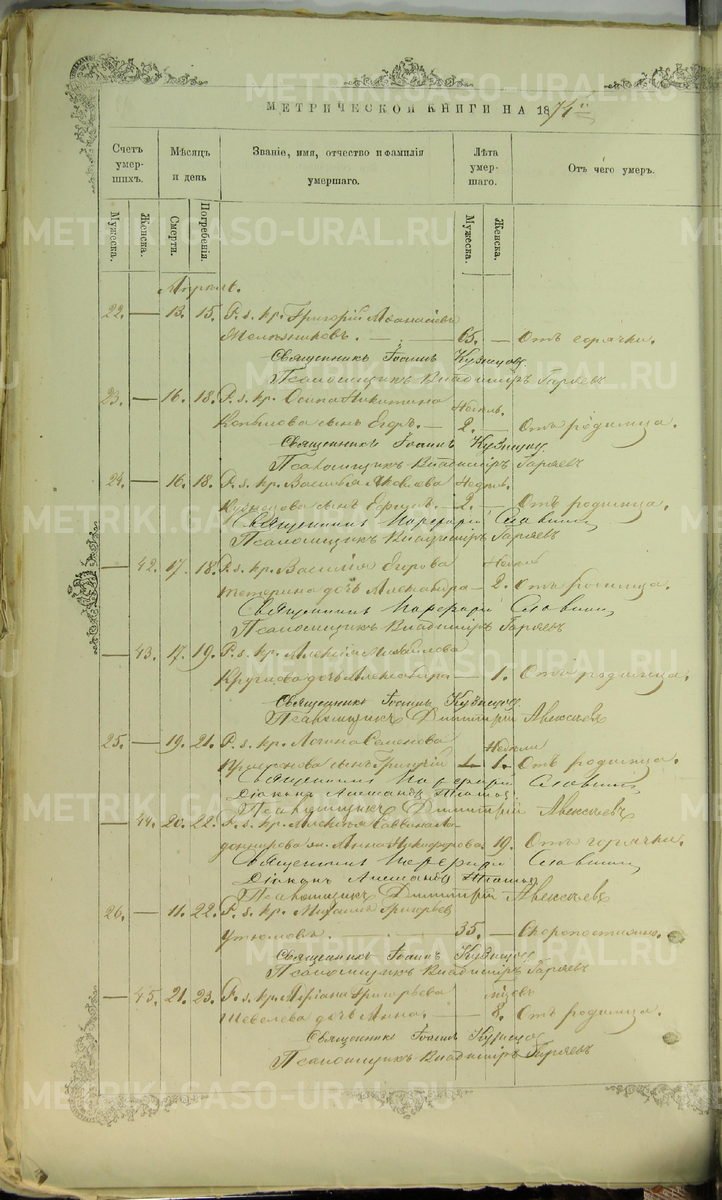 МЕТРИЧЕСКОЙ КНИГИ НА 1874й
Счетъ умерших. Мѣсяцъ и день Званіе, имя, отчество и фамилія умершаго. Лѣта умершаго. Отъ чего умеръ.
Мужеска. Женска. Смерти. Погребенія. Мужеска. Женска.
Апрѣль.
22. — 13. 15. Р. з. кр. Григорій Аѳанасіевъ
Мельниковъ. — 65. — Отъ горячки.
Священникъ Іоаннъ Кузнецовъ
Псаломщикъ Владиміръ Гаряевъ
23. — 16. 18. Р. з. кр. Осипа Никитина Недѣль.
Копылова сынъ Егоръ. — 2. — Отъ родимца.
Священникъ Іоаннъ Кузнецовъ
Псаломщикъ Владиміръ Гаряевъ
24. — 16. 18. Р. з. кр. Василья Яковлева Недѣль.
Кузнецова сынъ — 2. — Отъ родимца.
Священникъ Порфирій Славнинъ
Псаломщикъ Владиміръ Гаряевъ
— 42. 17. 18. Р. з. кр. Василія Егорова Недѣль
Тетерина дочь Александра — 2. Отъ родимца.
Священникъ Порфирій Славнинъ
Псаломщикъ Владиміръ Гаряевъ
— 43. 17. 19. Р. з. кр. Алексѣя Михайлова
дочь Александра — 1. Отъ родимца.
Священникъ Іоаннъ Кузнецовъ
Псаломщикъ Димитрій Алексѣевъ
25. — 19. 21. Р. з. кр. Логина Семенова Недѣли
сынъ Григорій 1. Отъ родимца.
Священникъ Порфирій Славнинъ
Діаконъ Александръ
Псаломщикъ Димитрій Алексѣевъ
— 44. 20. 22. Р. з. кр. Алексѣя Саввина
Анна Никифорова 19. Отъ горячки.
Священникъ Порфирій Славнинъ
Діаконъ Александръ
Псаломщикъ Димитрій Алексѣевъ
26. — 11. 22. Р. з. кр. Михаилъ Григорьевъ
Утюмовъ. 35. — Скоропостижно.
Священникъ Іоаннъ Кузнецовъ
Псаломщикъ Владиміръ Гаряевъ
— 45. 21. 23. Р. з. кр. Григорьева мѣсяцовъ
Шевелева дочь Анна. — 8. Отъ родимца.
Священникъ Іоаннъ Кузнецовъ
Псаломщикъ Владиміръ Гаряевъ
METRIKI.GASO-URAL.RU